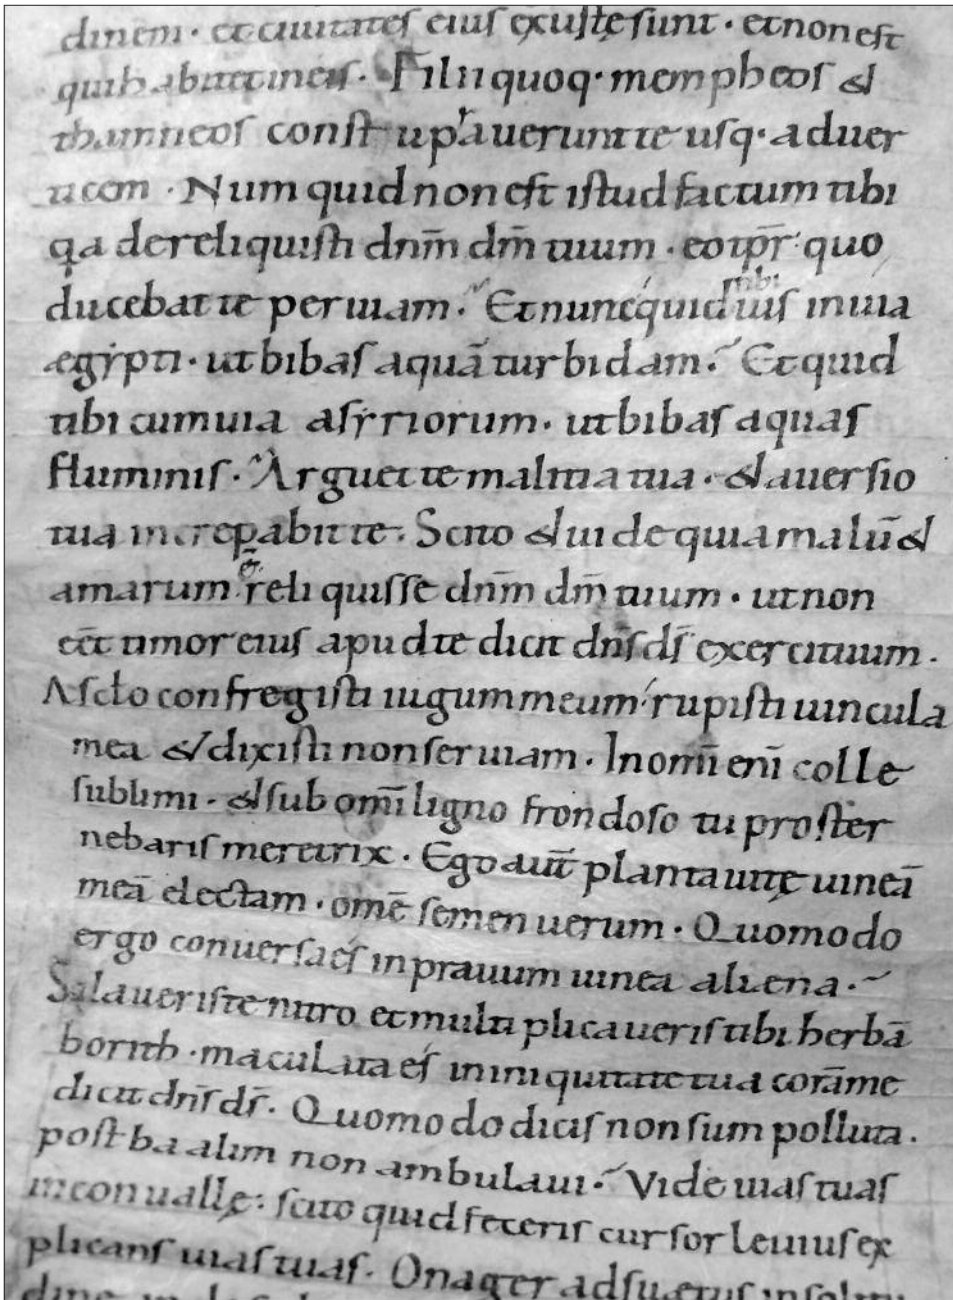 dinem · et ciuitates eius exustę sunt · et non est
qui habitet in eis · Filii quoq· mempheos &
thamneos constuprauerunt te usq· ad uer
ticem · Numquid non est istud factum tibi
qa dereliquisti dnm̄ dm̄ tuum · eo tpr̄ quo
ducebat te per uiam · Et nunc quid tibi uis in uia
ęgypti · ut bibas aquā turbidam · Et quid
tibi cum uia asyriorum · ut bibas aquas
fluminis · Arguet te malitia tua · & auersio
tua increpabit te · Scito & uide quia malū &
amarum reliquisse dnm̄ dm̄ tuum · ut non
eēt timor eius apud te dicit dnȓs ds̄ exercituum ·
A sc̄lo confregisti iugum meum · rupisti uincula
mea & dixisti non seruiam · In omī enī colle
sublimi · & sub omī ligno frondoso tu proster
nebaris meretrix · Ego aut̄ plantaui tę uineā
meā electam · omē semen uerum · Quomodo
ergo conuersa es in prauum uinea aliena ·
Si laueris te nitro et multiplicaueris tibi herbā
borith · maculata es in iniquitate tua corā me
dicit dns̄ ds̄ · Quomodo dicis non sum polluta ·
post baalim non ambulaui · Vide uias tuas
in conuallę : scito quid feceris cursor leuius ex
plicans uias tuas · Onager adsuetus in solitu